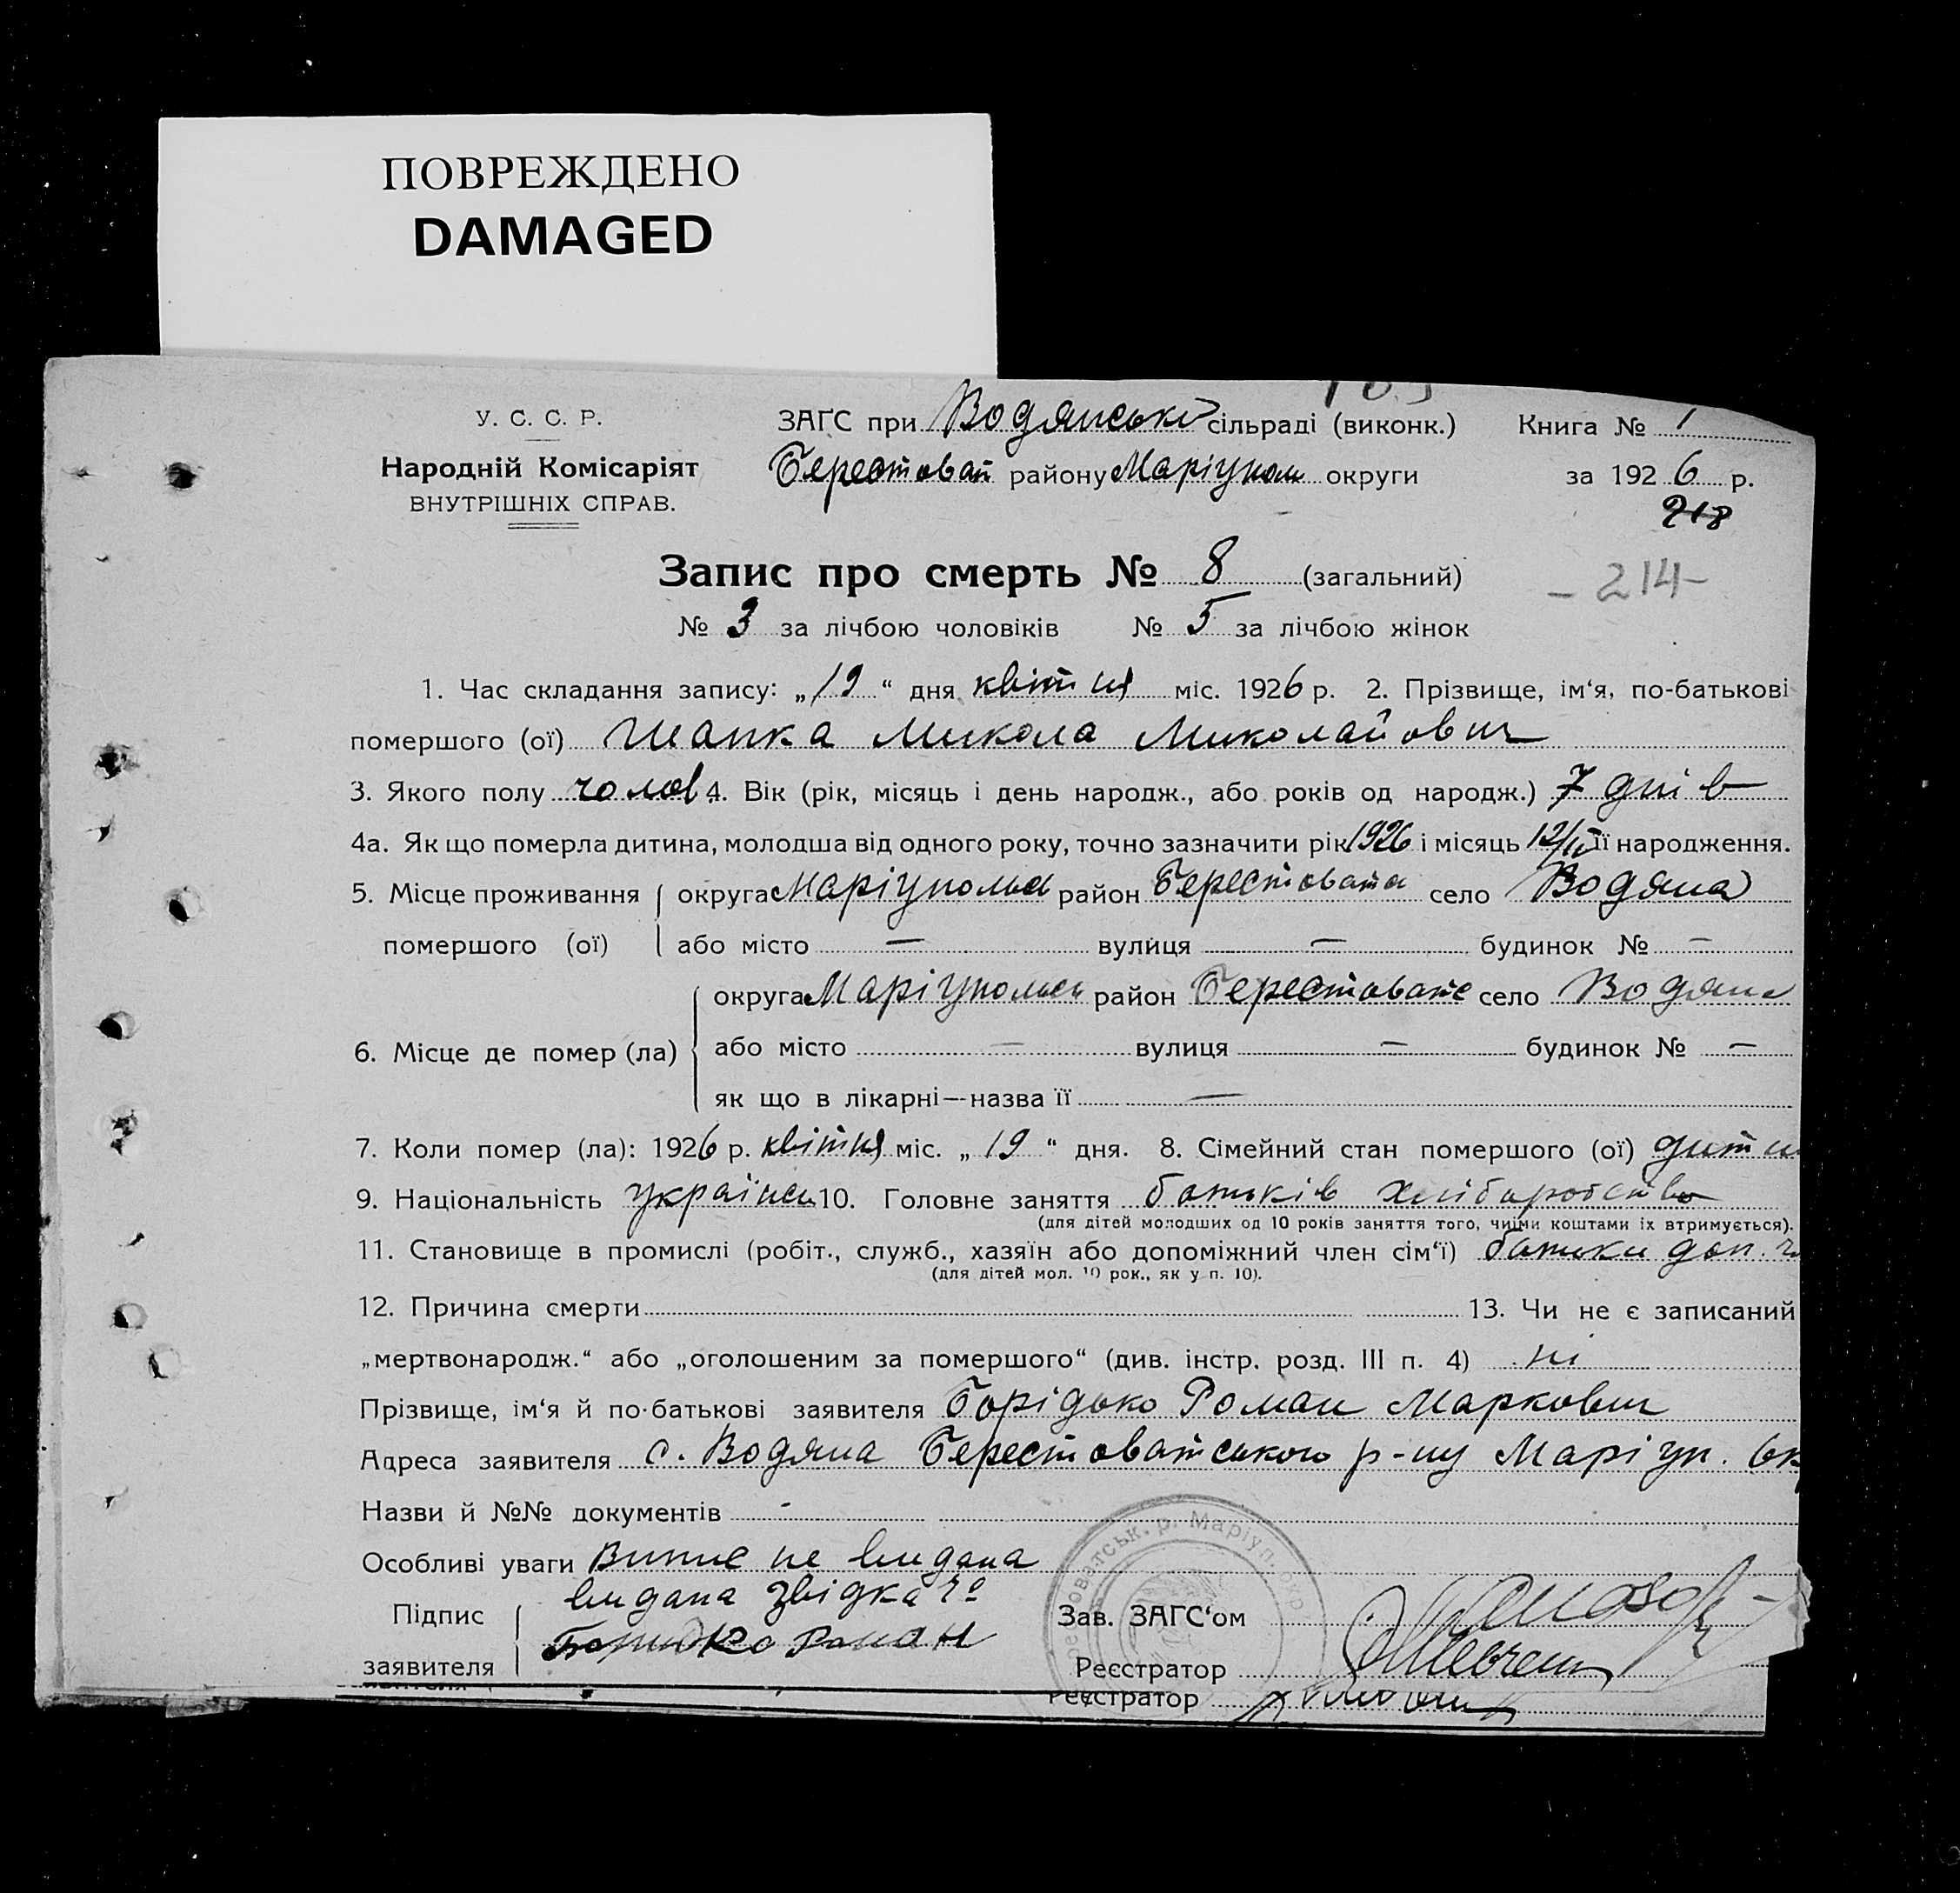 ПОВРЕЖДЕНО
DAMAGED
У. С. С. Р.
Народній Комісаріят
ВНУТРІШНІХ СПРАВ.
ЗАГС при Водянські сільраді (виконк.)
Берестоват району Маріупол округи
Книга № 1
за 1926 р.
218
Запис про смерть № 8 (загальний)
- 214 -
№ 3 за лічбою чоловіків № 5 за лічбою жінок
1. Час складання запису: „19“ дня квітня міс. 1926 р. 2. Прізвище, ім‘я, по-батькові
помершого (ої) Шапка Микола Миколайович
3. Якого полу чолов 4. Вік (рік, місяць і день народж., або років од народж.) 7 днів
4а. Як що померла дитина, молодша від одного року, точно зазначити рік 1926 і місяць 12/IV її народження.
5. Місце проживання округа Маріупольськ район Берестовата село Водяна
помершого (ої) або місто — вулиця — будинок № —
округа Маріупольськ район Берестовате село Водяна
6. Місце де помер (ла) або місто — вулиця — будинок № —
як що в лікарні—назва її —
7. Коли помер (ла): 1926 р. квітня міс. „19“ дня. 8. Сімейний стан помершого (ої) дитин
9. Національність українськ 10. Головне заняття батьків хліборобство
(для дітей молодших од 10 років заняття того, чиїми коштами їх втримується).
11. Становище в промислі (робіт., служб., хазяїн або допоміжний член сім‘ї) батьки доп. ч
(для дітей мол. 10 рок., як у п. 10).
12. Причина смерти 13. Чи не є записаний
„мертвонародж.“ або „оголошеним за помершого“ (див. інстр. розд. III п. 4) ні
Прізвище, ім‘я й по-батькові заявителя Борідько Роман Маркович
Адреса заявителя с. Водяна Берестоватського р-ну Маріуп. ок
Назви й №№ документів -
Особливі уваги Випис не видана
видана звідка
Підпис
заявителя Боридко Роман
Зав. ЗАГС‘ом
Реєстратор Шевчен
товатськ. р. Маріуп. окр.
Реєстратор